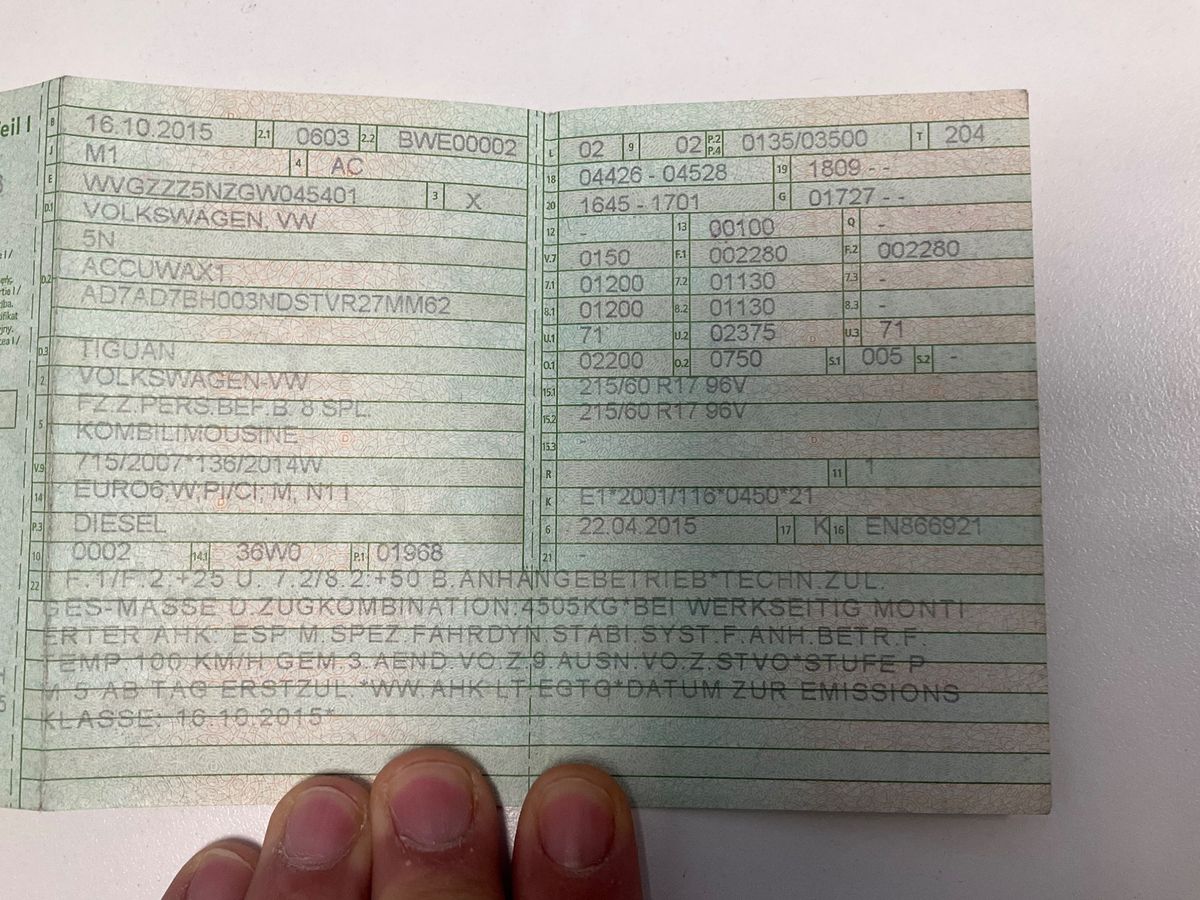 Teil I
B 16.10.2015 2.1 0603 2.2 BWE00002
J M1 4 AC
E WVGZZZ5NZGW045401 3 X
D.1 VOLKSWAGEN, VW
5N
D.2 ACCUWAX1
AD7AD7BH003NDSTVR27MM62
D.3 TIGUAN
2 VOLKSWAGEN-VW
FZ.Z.PERS.BEF.B. 8 SPL.
5 KOMBILIMOUSINE
V.9 715/2007*136/2014W
14 EURO6;W;PI/CI; M, N1 I
P.3 DIESEL
10 0002 14.1 36W0 P.1 01968
L 02 9 02 P.2 P.4 0135/03500 T 204
18 04426 - 04528 19 1809 - -
20 1645 - 1701 G 01727 - -
12 - 13 00100 Q -
V.7 0150 F.1 002280 F.2 002280
7.1 01200 7.2 01130 7.3 -
8.1 01200 8.2 01130 8.3 -
U.1 71 U.2 02375 U.3 71
O.1 02200 O.2 0750 S.1 005 S.2 -
15.1 215/60 R17 96V
15.2 215/60 R17 96V
15.3 -
R 11 1
K E1*2001/116*0450*21
6 22.04.2015 17 K 16 EN866921
21 -
22 F.1/F.2:+25 U. 7.2/8.2:+50 B.ANHÄNGEBETRIEB*TECHN.ZUL.
GES-MASSE D.ZUGKOMBINATION:4505KG*BEI WERKSEITIG MONTI
ERTER AHK: ESP M.SPEZ.FAHRDYN.STABI.SYST.F.ANH.BETR.F.
TEMP.100 KM/H GEM.3.AEND.VO.Z.9.AUSN.VO.Z.STVO*STUFE P
M 5 AB TAG ERSTZUL.*WW.AHK LT.EGTG*DATUM ZUR EMISSIONS
KLASSE: 16.10.2015*